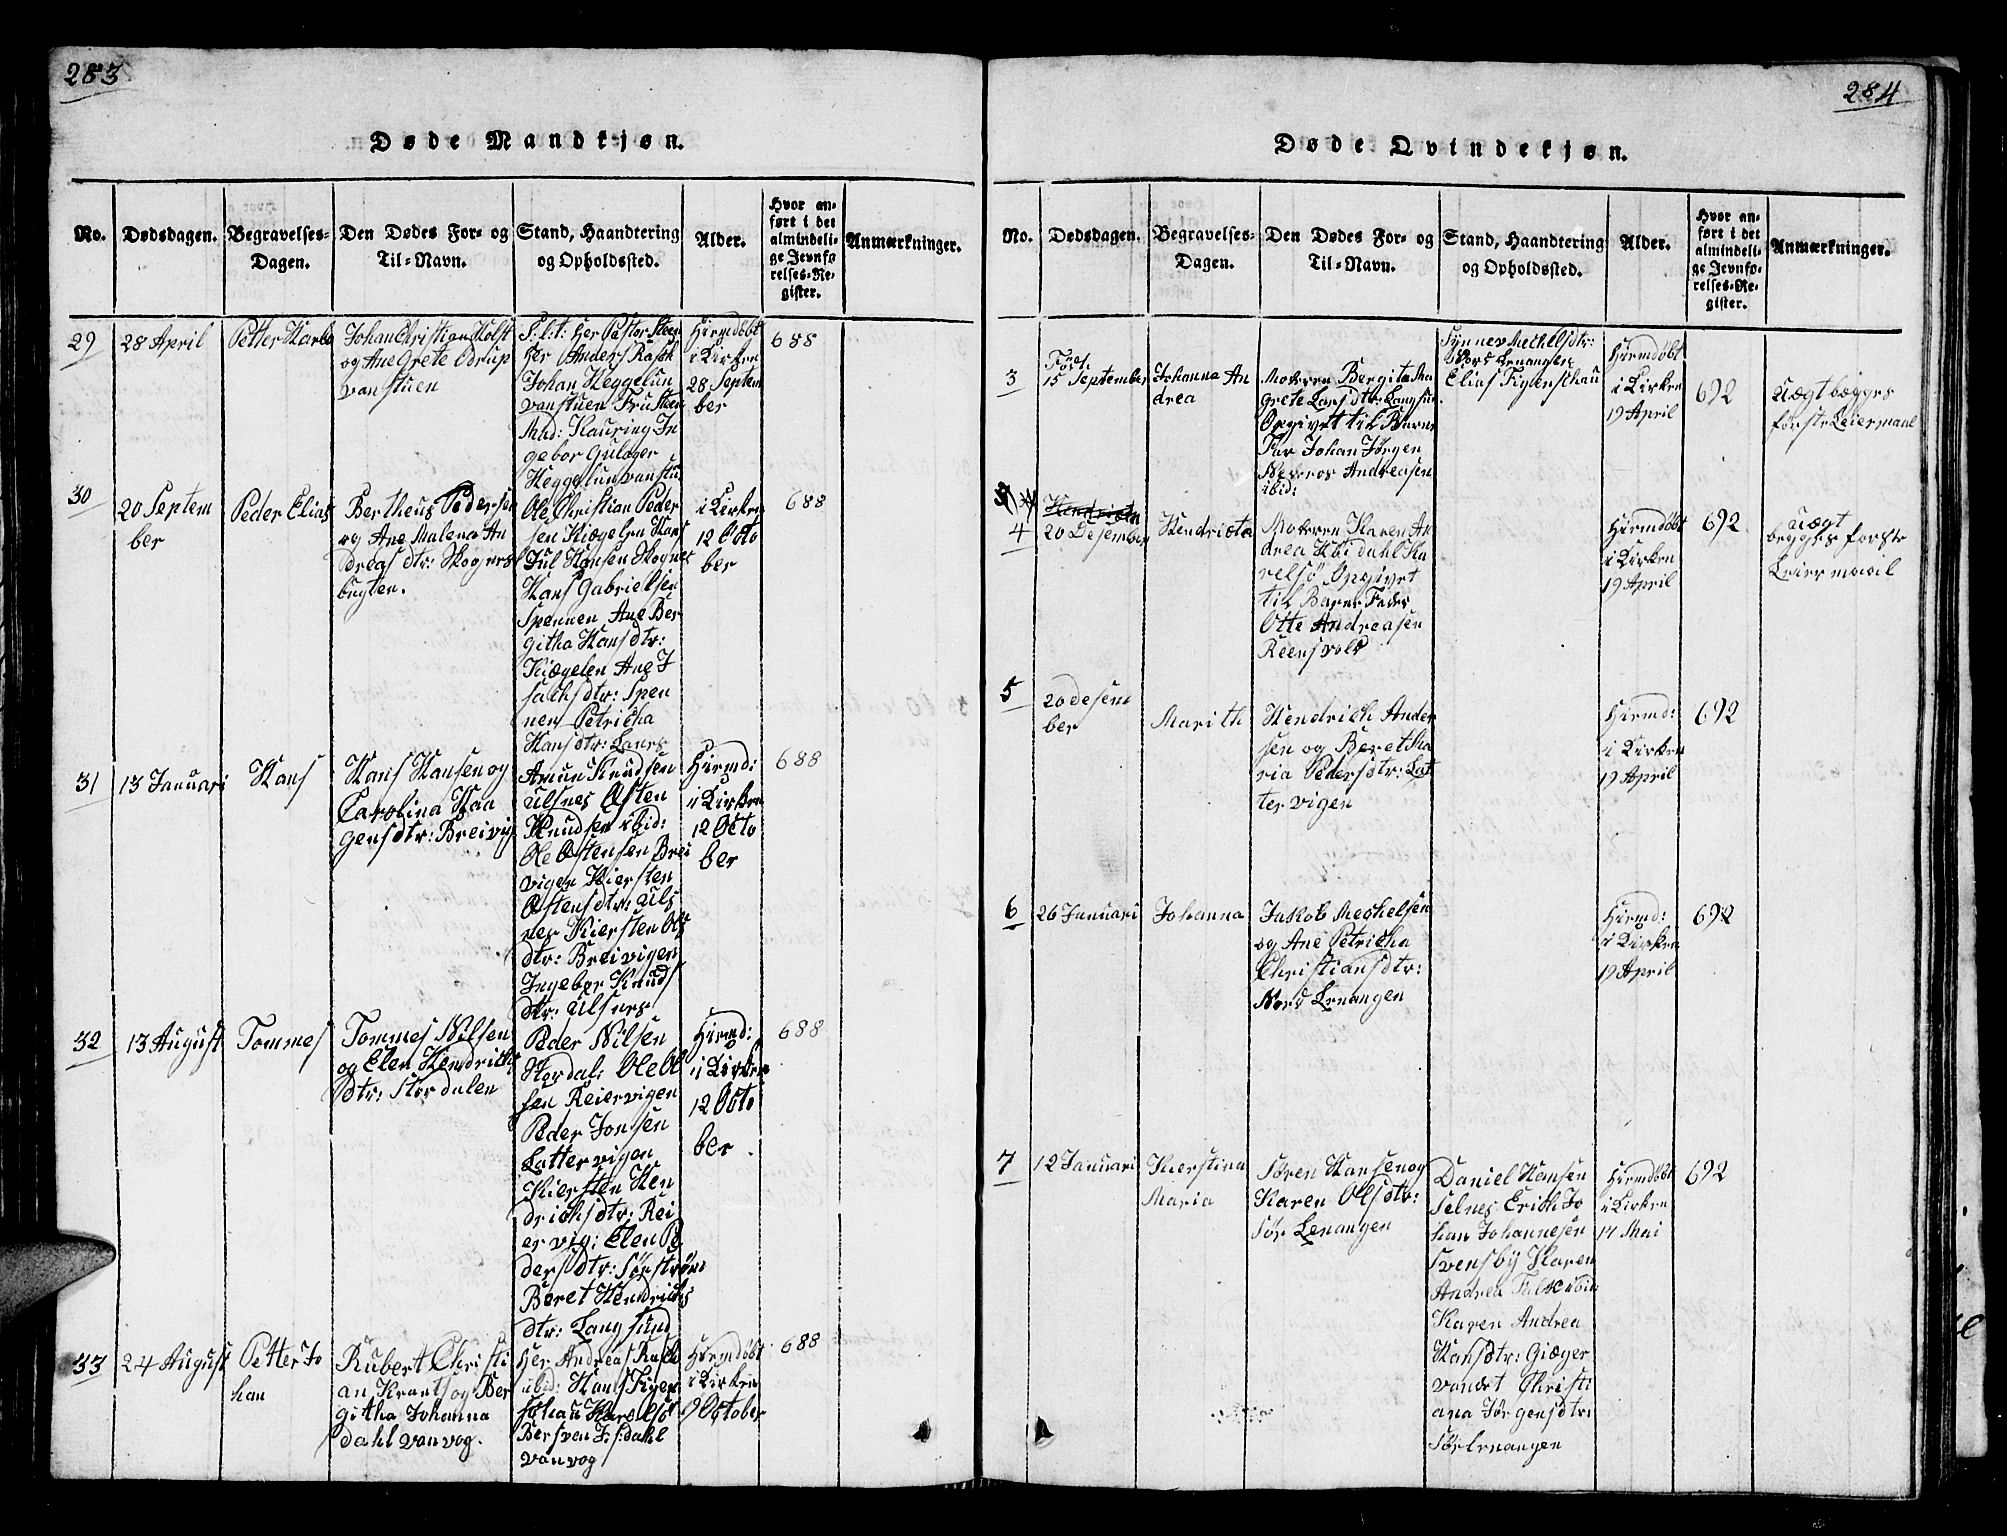 283
Døde Mandkjøn.
No.
Dødsdagen.
Begravelses-
Dagen.
Den Dødes For- og
Til-Navn.
Stand, Haandtering
og Opholdssted.
Alder.
Hvor an-
ført i det
almindeli-
ge Jevnfø-
relses-Re-
gister.
Anmærkninger.
29
28 April
Petter
Johan Christian Holst
og Ane Grete Odrup
vanstuen
S: t: Her Pastor Steen
Her Anders Rasch
Johan Heggelun
vanstuen Fru Steen
Mad: Hauring In
gebor Gulager
Heggelun vanstu
Hiemdøbt
i Kirken
28 Septem
ber
688
30
20 Septem
ber
Peder Elias
Bertheus Pedersen
og Ane Malena An
dreas dtr: Skogners
bugten.
Ole Christian Peder
sen Kiægelen Hans
Jul Hansen Skogner
Hans Gabrielsen
Spennen Ane Ber
githa Hansdtr:
Kiægelen Ane I
sachsdtr: Spen
nen Petricha
Hansdtr:
i Kirken
12 Octo
ber
688
31
13 Januari
Hans
Hans Hansen og
Carolina Haa
gensdtr: Breivig
Amun Knudsen
Ulsnes Østen
Knudsen ibid:
Ole Østensen Brei
vigen Kiersten
Østensdtr: Uls
nes Kiersten Ols
dtr: Breivigen
Ingebor Knuds
dtr: Ulsnes
Hiemd:
i Kirken
12 Octo
ber
688
32
13 August
Tommes
Tommes Nilsen
og Elen Hendrichs
dtr: Stordalen
Peder Nilsen
Stordal: Ole Ol
sen Reiervigen
Peder Jonsen
Lattervigen
Kiersten Hen
drichsdtr: Rei
ervig: Elen Pe
dersdtr: Sørstrøm
Beret Hendrichs
dtr: Langsund
Hiemd:
i Kirken
12 Octo
ber
688
33
24 August
Petter Jo
han
Rubert Christi
an Krantz og Ber
githa Johanna
Dahl vanvog.
Her Andreas Rasch
ibid: Hans Figen
schau Karelsø
vanvog
Hiemdøbt
i Kirken
9 October
688
284
Døde Qvindekjøn.
No.
Dødsdagen.
Begravelses-
Dagen.
Den Dødes For- og
Til-Navn.
Stand, Haandtering
og Opholdssted.
Alder.
Hvor an-
ført i det
almindeli-
ge Jevnfø-
relses-Re-
gister.
Anmærkninger.
3
Født
15 September
Johanna An
drea
Moderen Bergita Ma
grete Larsdtr: Langsun
Opgivet til Barne
Far Johan Jørgen
Andreasen
ibid:
Synnev Mechelsdtr:
Nord Lenangen
Elias Figenschau
Hiemdøbt
i Kirken
19 April
692
Uægt bægges
første Leiermaal
4
20 Desember
Hendricta
Moderen Karen An
drea Ebi dahl Ka
relsö Opgivet
til Barne Fader
Otte Andreasen
Reensvold
Hiemdøbt
i Kirken
19 April
692
Uægt
begges første
Leiermaal
5
20 Desem
ber
Marith
Hendrich Ander
sen og Beret Ma
ria Pedersdtr: Lat
tervigen
Hiemd:
i Kirken
19 April
692
6
26 Januari
Johanna
Jakob Mechelsen
og Ane Petricha
Christiansdtr:
Nord Lenangen
Hiemd:
i Kirken
19 April
692
7
12 Januari
Kierstina
Maria
Sören Hansen og
Karen Olsdtr:
Sør Lenangen
Daniel Hansen
Selnes Erich Jo
han Johannesen
Svensby Karen
Andrea Falch ibid:
Karen Andrea
Hansdtr: Giæger
vandet Christi
ana Jørgensdtr:
Sørlenangen
Hiemdøbt
i Kirken
17 Mai
692